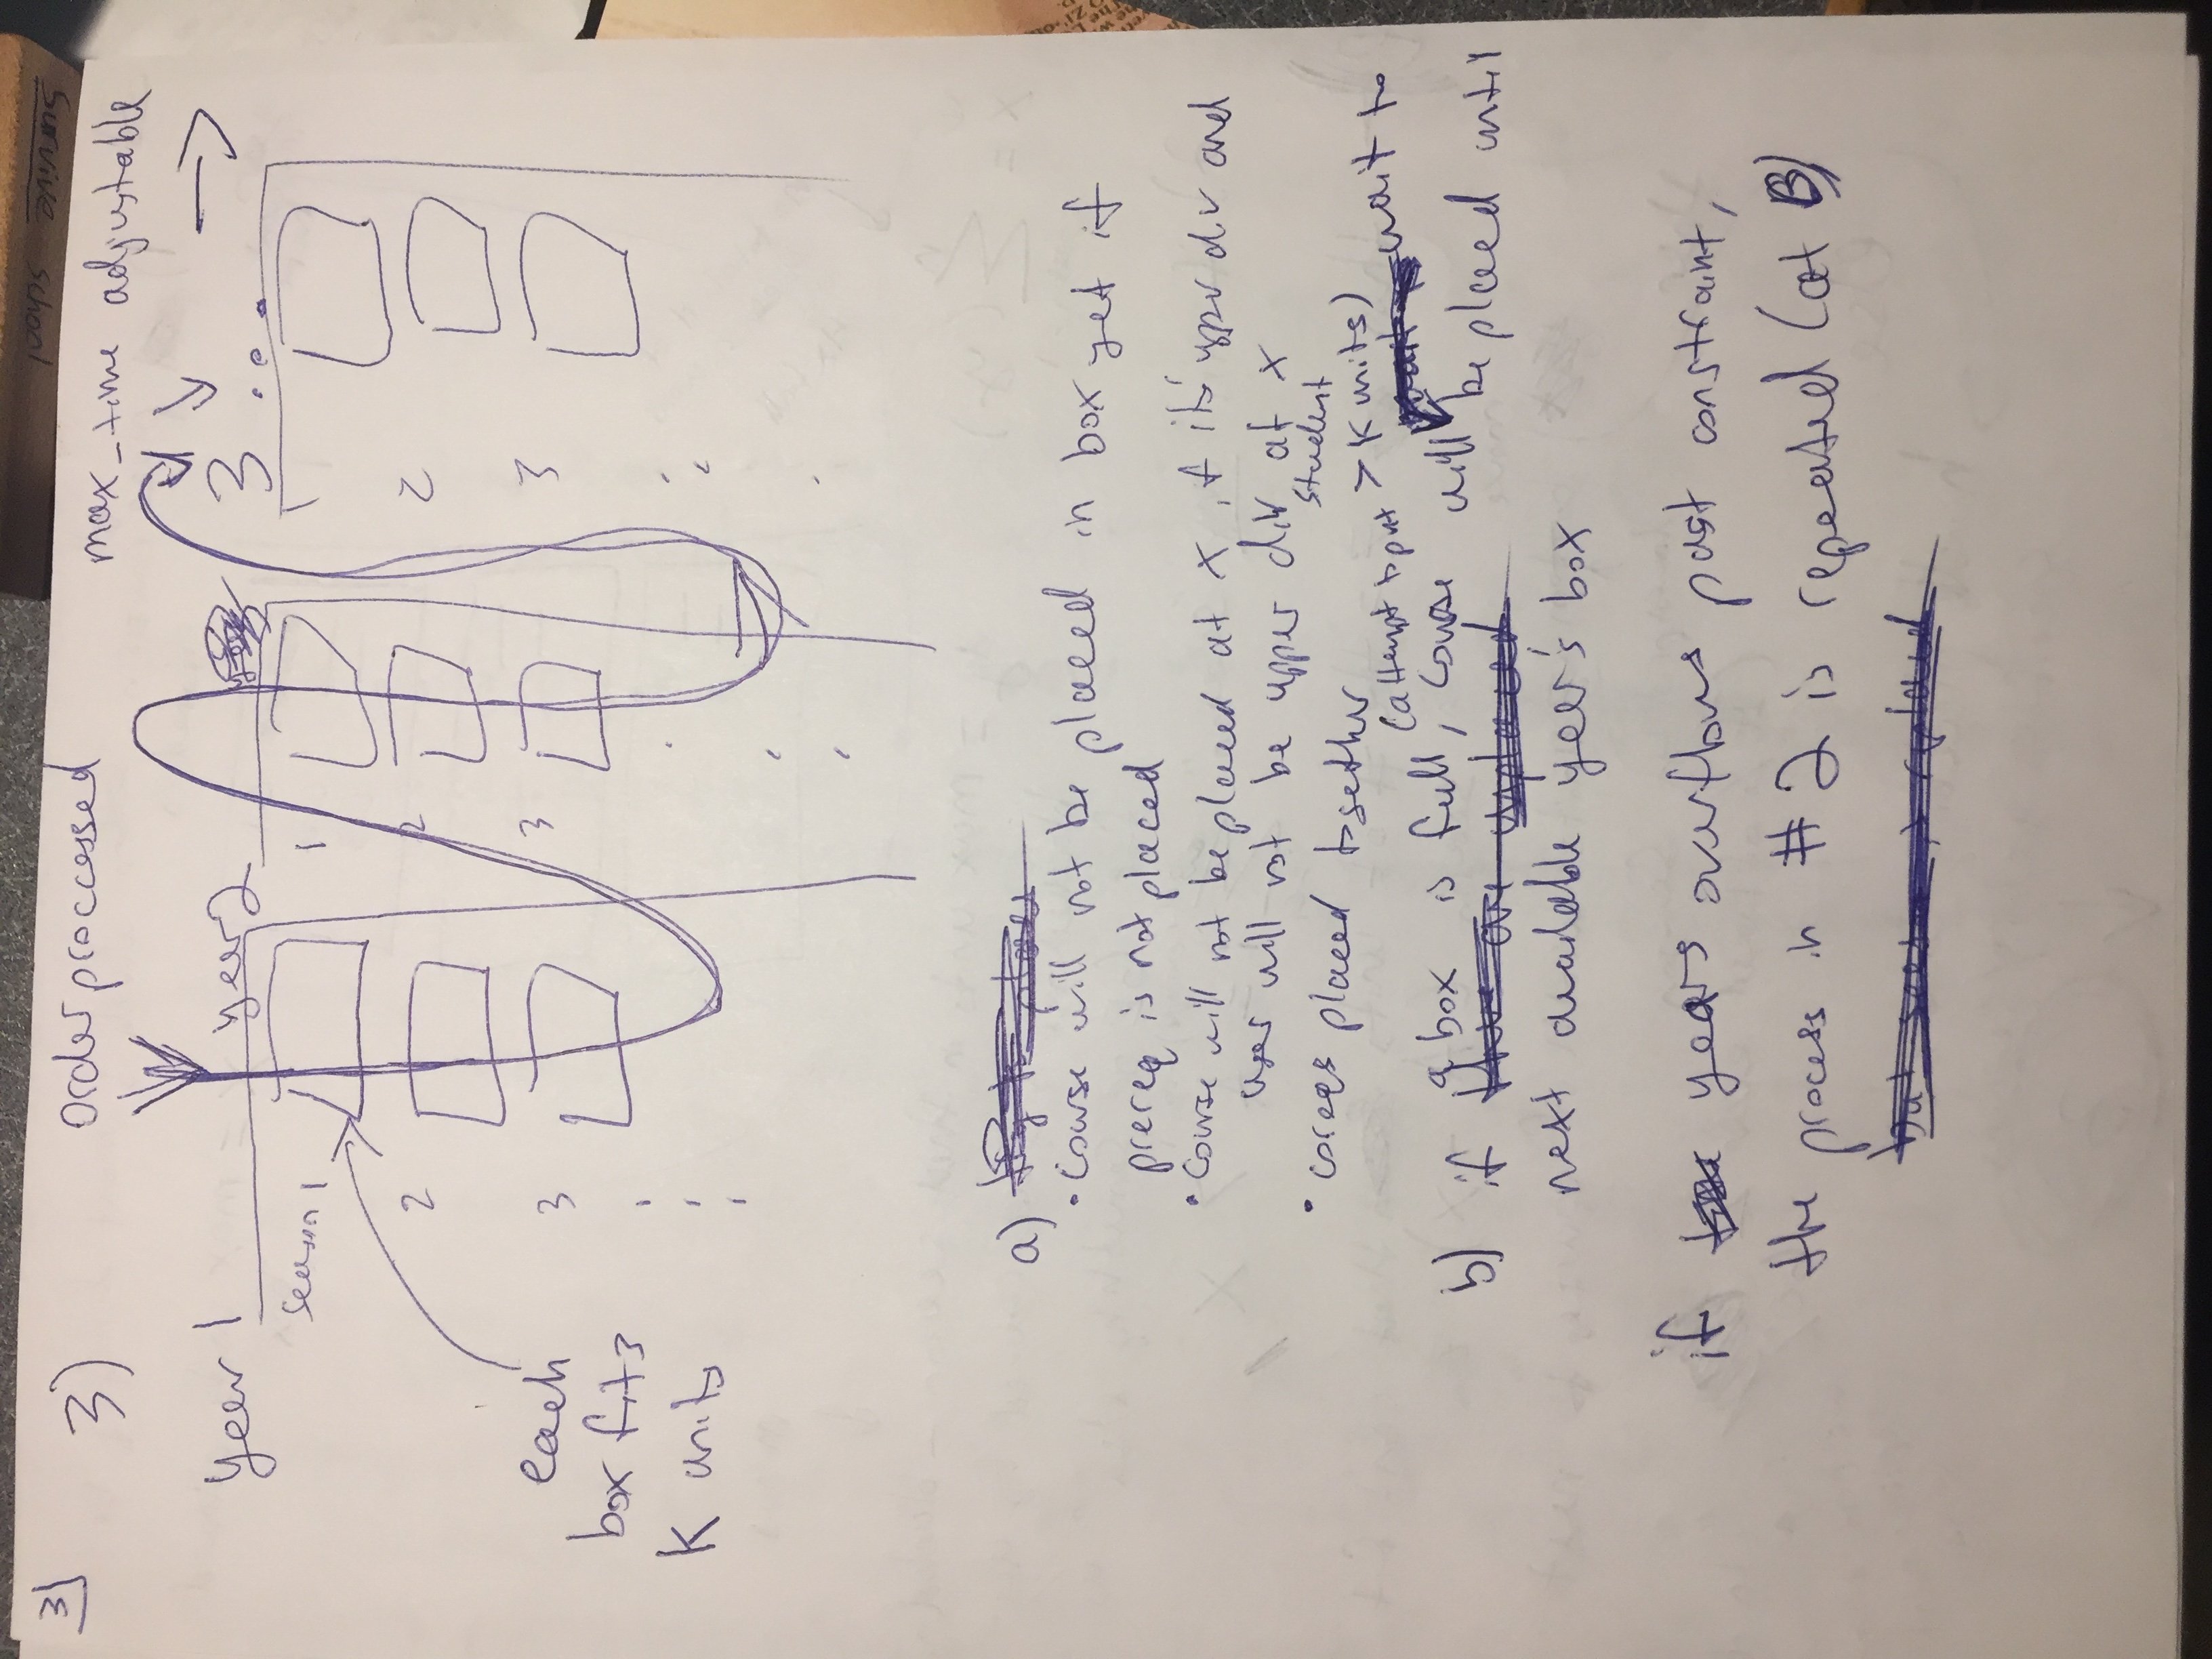 Survive school
3)
3)
order processed
max_time adjustable
year 1
year 2
3
season 1
1
1
2
2
2
3
3
3
each
box fits
K units
a)
• course will not be placed in box yet if
prereq is not placed
• course will not be placed at x if its upper div and
user will not be upper div at x
• coreqs placed together
student
(attempt to put > K units)
wait to
b) if a box is full, course will be placed until
next available year's box
if years overflows past constraint,
the process in #2 is repeated (at B)